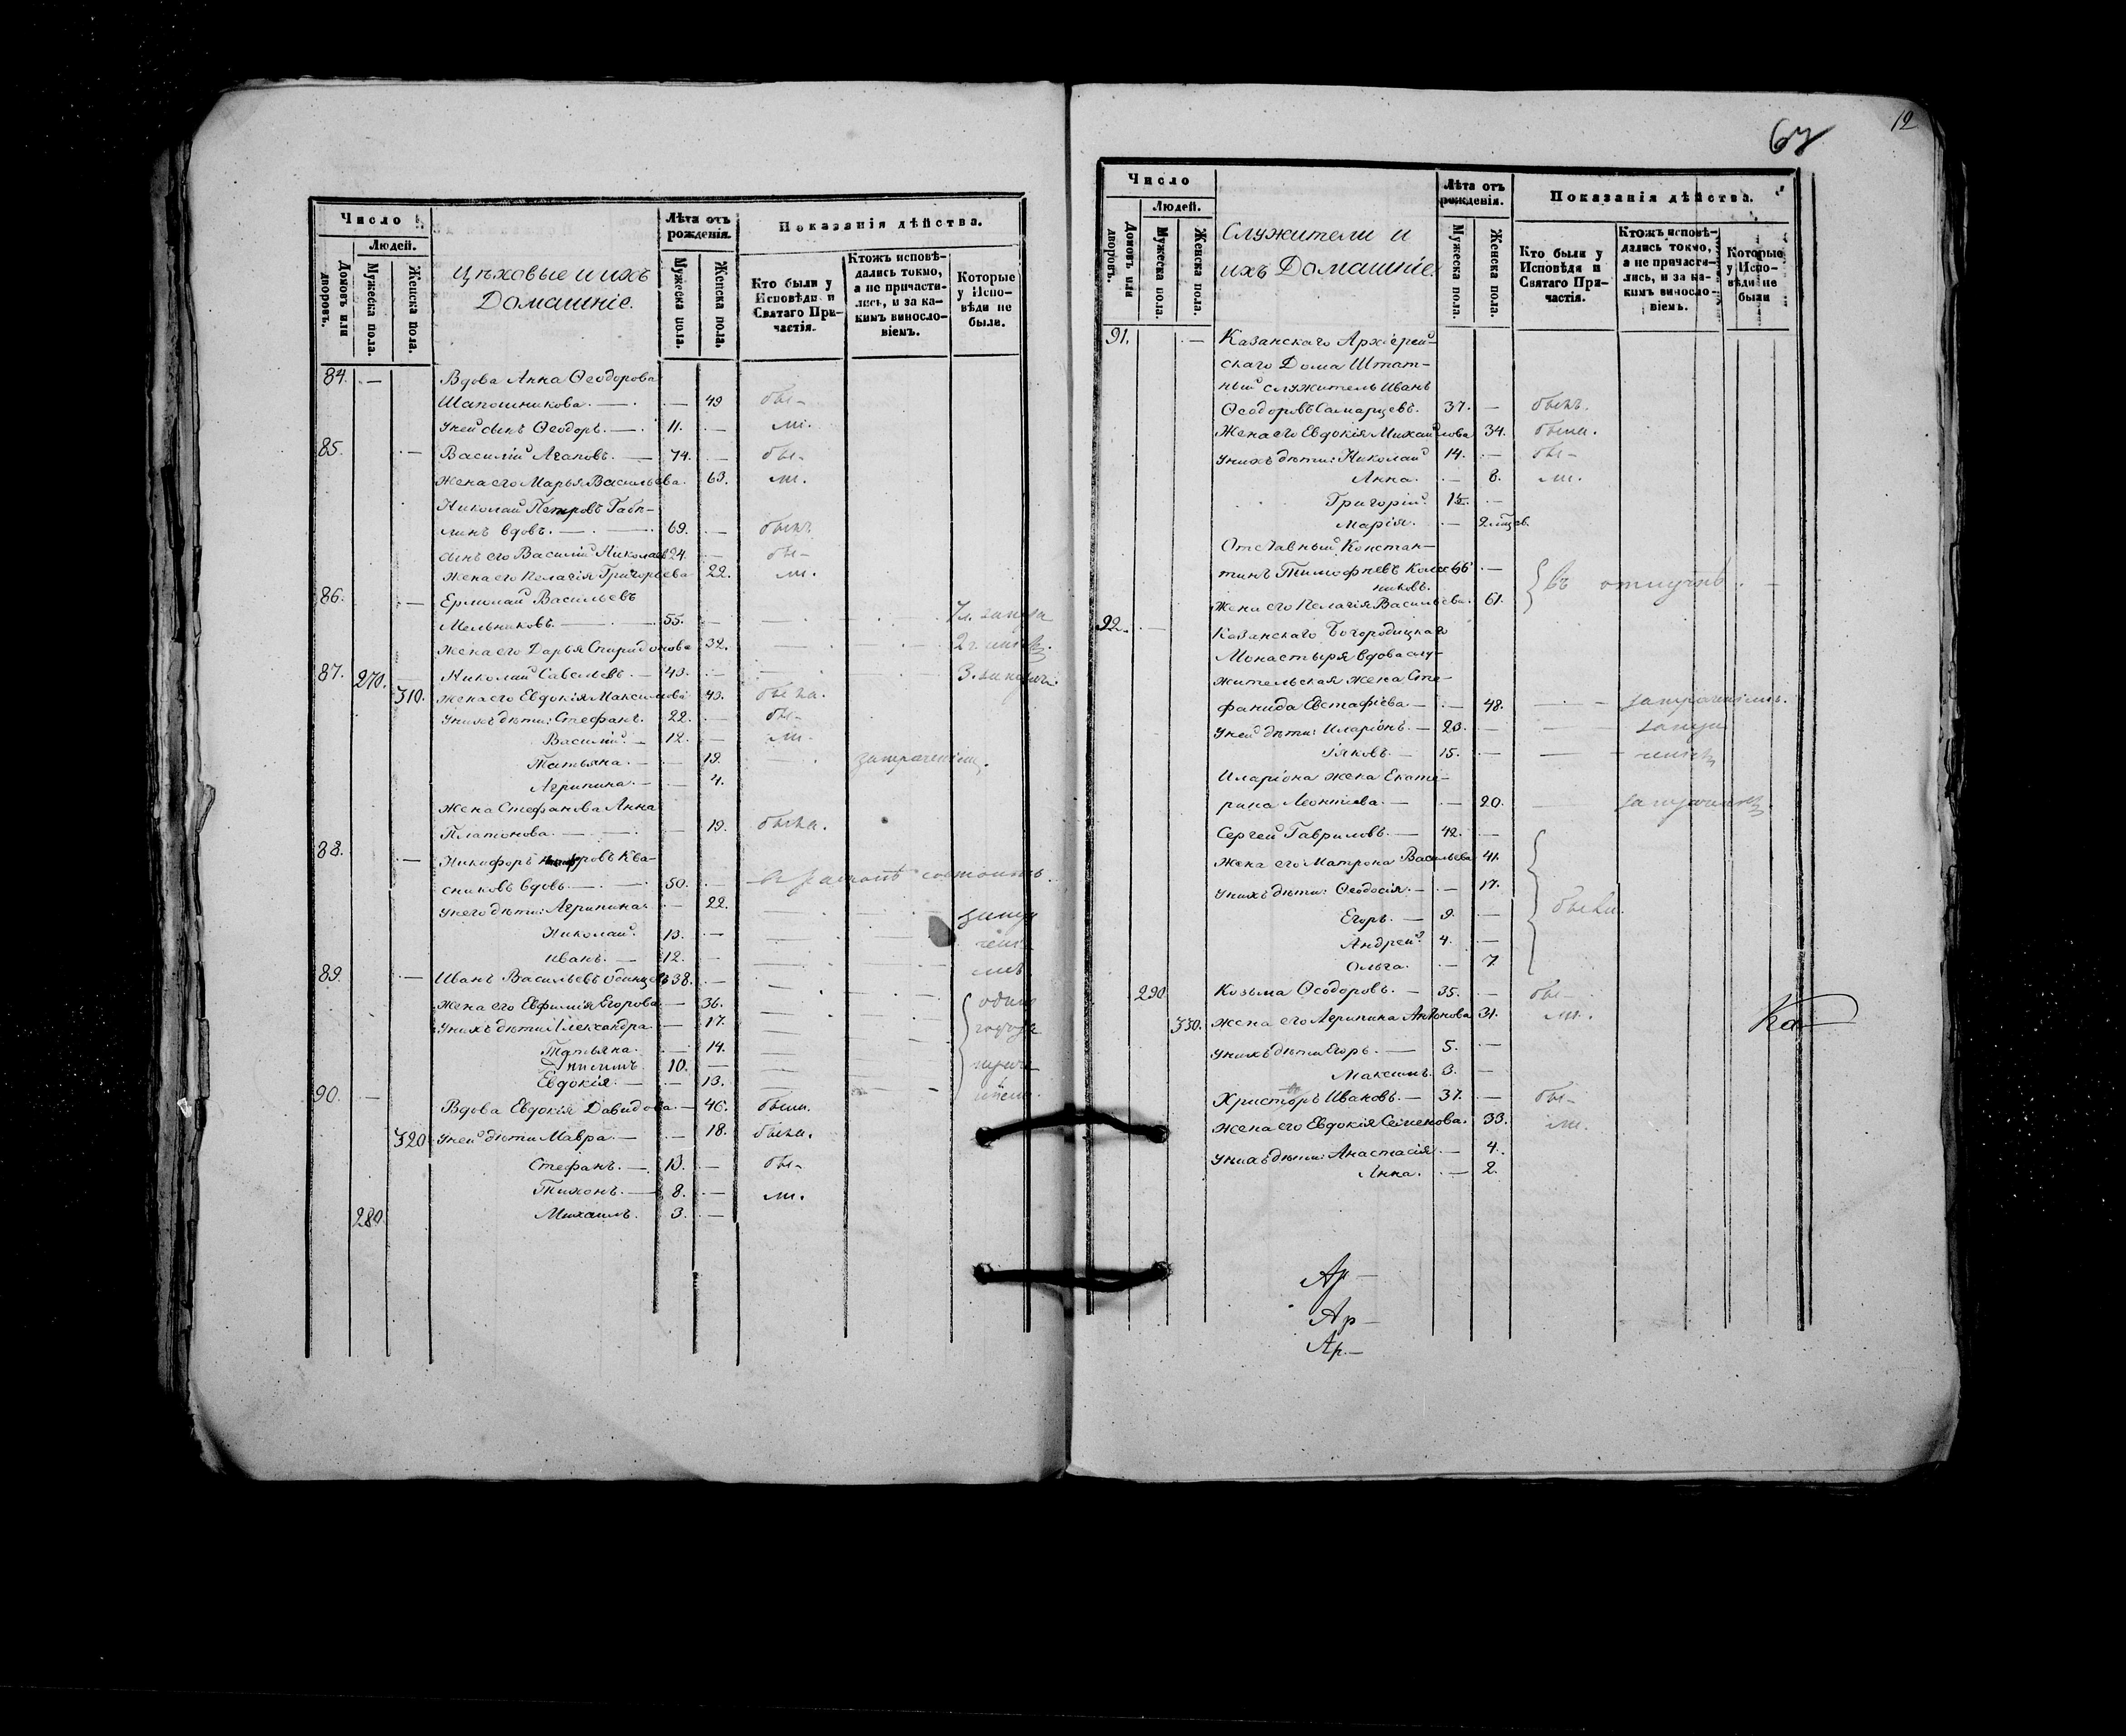 Число
Людей.
Домовъ или дворовъ.
Мужеска пола.
Женска пола.
Цѣховые и ихъ
Домашніе.
Лѣта отъ рожденія.
Мужеска пола.
Женска пола.
Показанія дѣйства.
Кто были у Исповѣди и Святаго Причастія.
Ктожъ исповѣдались токмо, а не причастились, и за какимъ винословіемъ.
Которые у Исповѣди не были.
84. Вдова Анна Ѳеодорова
Шапошникова. 49 бы-
У ней сынъ Ѳеодоръ. 11. ли.
85. Василій Агаповъ. 74. бы-
Жена его Марья Васильева. 63. ли.
Николай Петровъ
линъ вдовъ. 69. былъ
Сынъ его Василій Николаевъ 24. бы-
Жена его Пелагія Григорьева 22. ли.
86. Ермолай Васильевъ
Мельниковъ. 55.
Жена его Дарья Спиридонова 32.
87. 270. Николай Савельевъ. 43.
310. Жена его Евдокія Максимова 43. была.
У нихъ дѣти: Стефанъ. 22. бы-
Василій. 12. ли.
Татьяна. 19.
Агрипина. 4.
Жена Стефанова Анна
Платонова. 19. была.
88. Никифоръ Ква-
сниковъ вдовъ. 50.
У него дѣти: Агрипина. 22.
Николай. 13.
Иванъ. 12.
89. Иванъ Васильевъ Одинцевъ 38.
Жена его Евфимія Егорова. 36.
У нихъ дѣти Александра 17.
Татьяна. 14.
10.
Евдокія. 13.
90. Вдова Евдокія Давидова. 46. была.
320 У ней дѣти Мавра. 18. была.
Стефанъ. 13. бы-
Тихонъ. 8. ли.
280 Михаилъ. 3.
67
12
Число
Людей.
Домовъ или дворовъ.
Мужеска пола.
Женска пола.
Служители и
ихъ Домашніе
Лѣта отъ рожденія.
Мужеска пола.
Женска пола.
Показанія дѣйства.
Кто были у Исповѣди и Святаго Причастія.
Ктожъ исповѣдались токмо, а не причастились, и за какимъ винословіемъ.
Которые у Исповѣди не были
91. Казанскаго Архіерей-
скаго Дома Штат-
ный служитель Иванъ
Ѳеодоровъ Самарцевъ. 37. былъ.
Жена его Евдокія Михайлова 34. была.
У нихъ дѣти: Николай 14. бы-
Анна. 8. ли.
Григорій.
Марія.
Отставный Констан-
тинъ Тимофеевъ 66
никовъ.
Жена его Пелагія Васильева. 61. въ отлучкѣ.
92. Казанскаго Богородицкаго
Монастыря вдова слу-
жительская жена Сте-
фанида Евстафіева. 48.
У ней дѣти: Иларіонъ. 23.
Іяковъ. 15.
Иларіона жена Екате-
рина Леонтіева. 20.
Сергей Гавриловъ. 42.
Жена его Матрона Васильева 41.
У нихъ дѣти: Ѳеодосія. 17.
Егоръ. 9. были.
Андрей 4.
Ольга. 7
290 Козьма Ѳеодоровъ. 35. бы-
330. Жена его Агрипина Антонова 31. ли.
У нихъ дѣти Егоръ. 5.
Максимъ. 3.
Христоръ Ивановъ. 37. бы-
Жена его Евдокія Семенова. 33. ли.
У нихъ дѣти: Анастасія 4.
Анна. 2.
Ка
Ар
Ар
Ар.